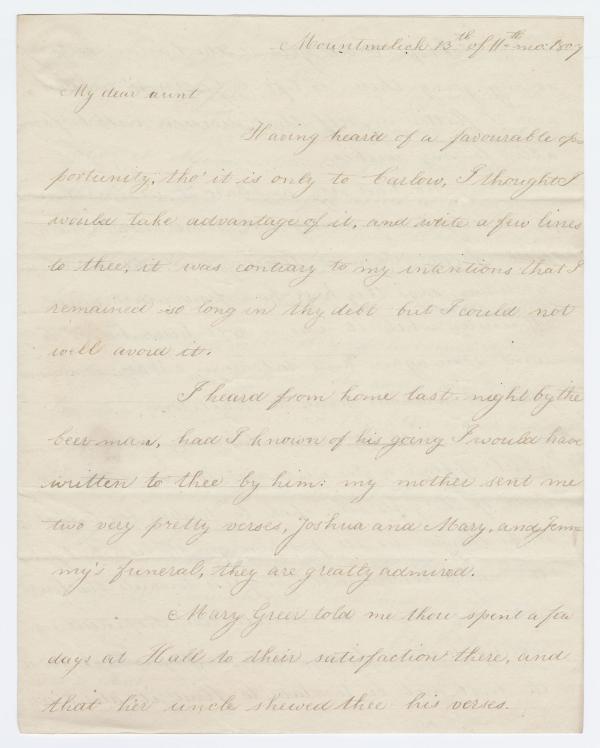 Mountmelick 13th of 11th mo: 1807
My dear aunt
Having heard of a favourable op-
portunity, tho' it is only to Carlow, I thought I
would take advantage of it, and write a few lines
to thee, it was contrary to my intentions that I
remained so long in thy debt but I could not
well avoid it.
I heard from home last night by the
beer-man, had I known of his going I would have
written to thee by him: my mother sent me
two very pretty verses, Joshua and Mary, and Jem-
my's funeral, they are greatly admired.
Mary Greer told me thou spent a few
days at Hall to their satisfaction there, and
that her uncle shewed thee his verses.